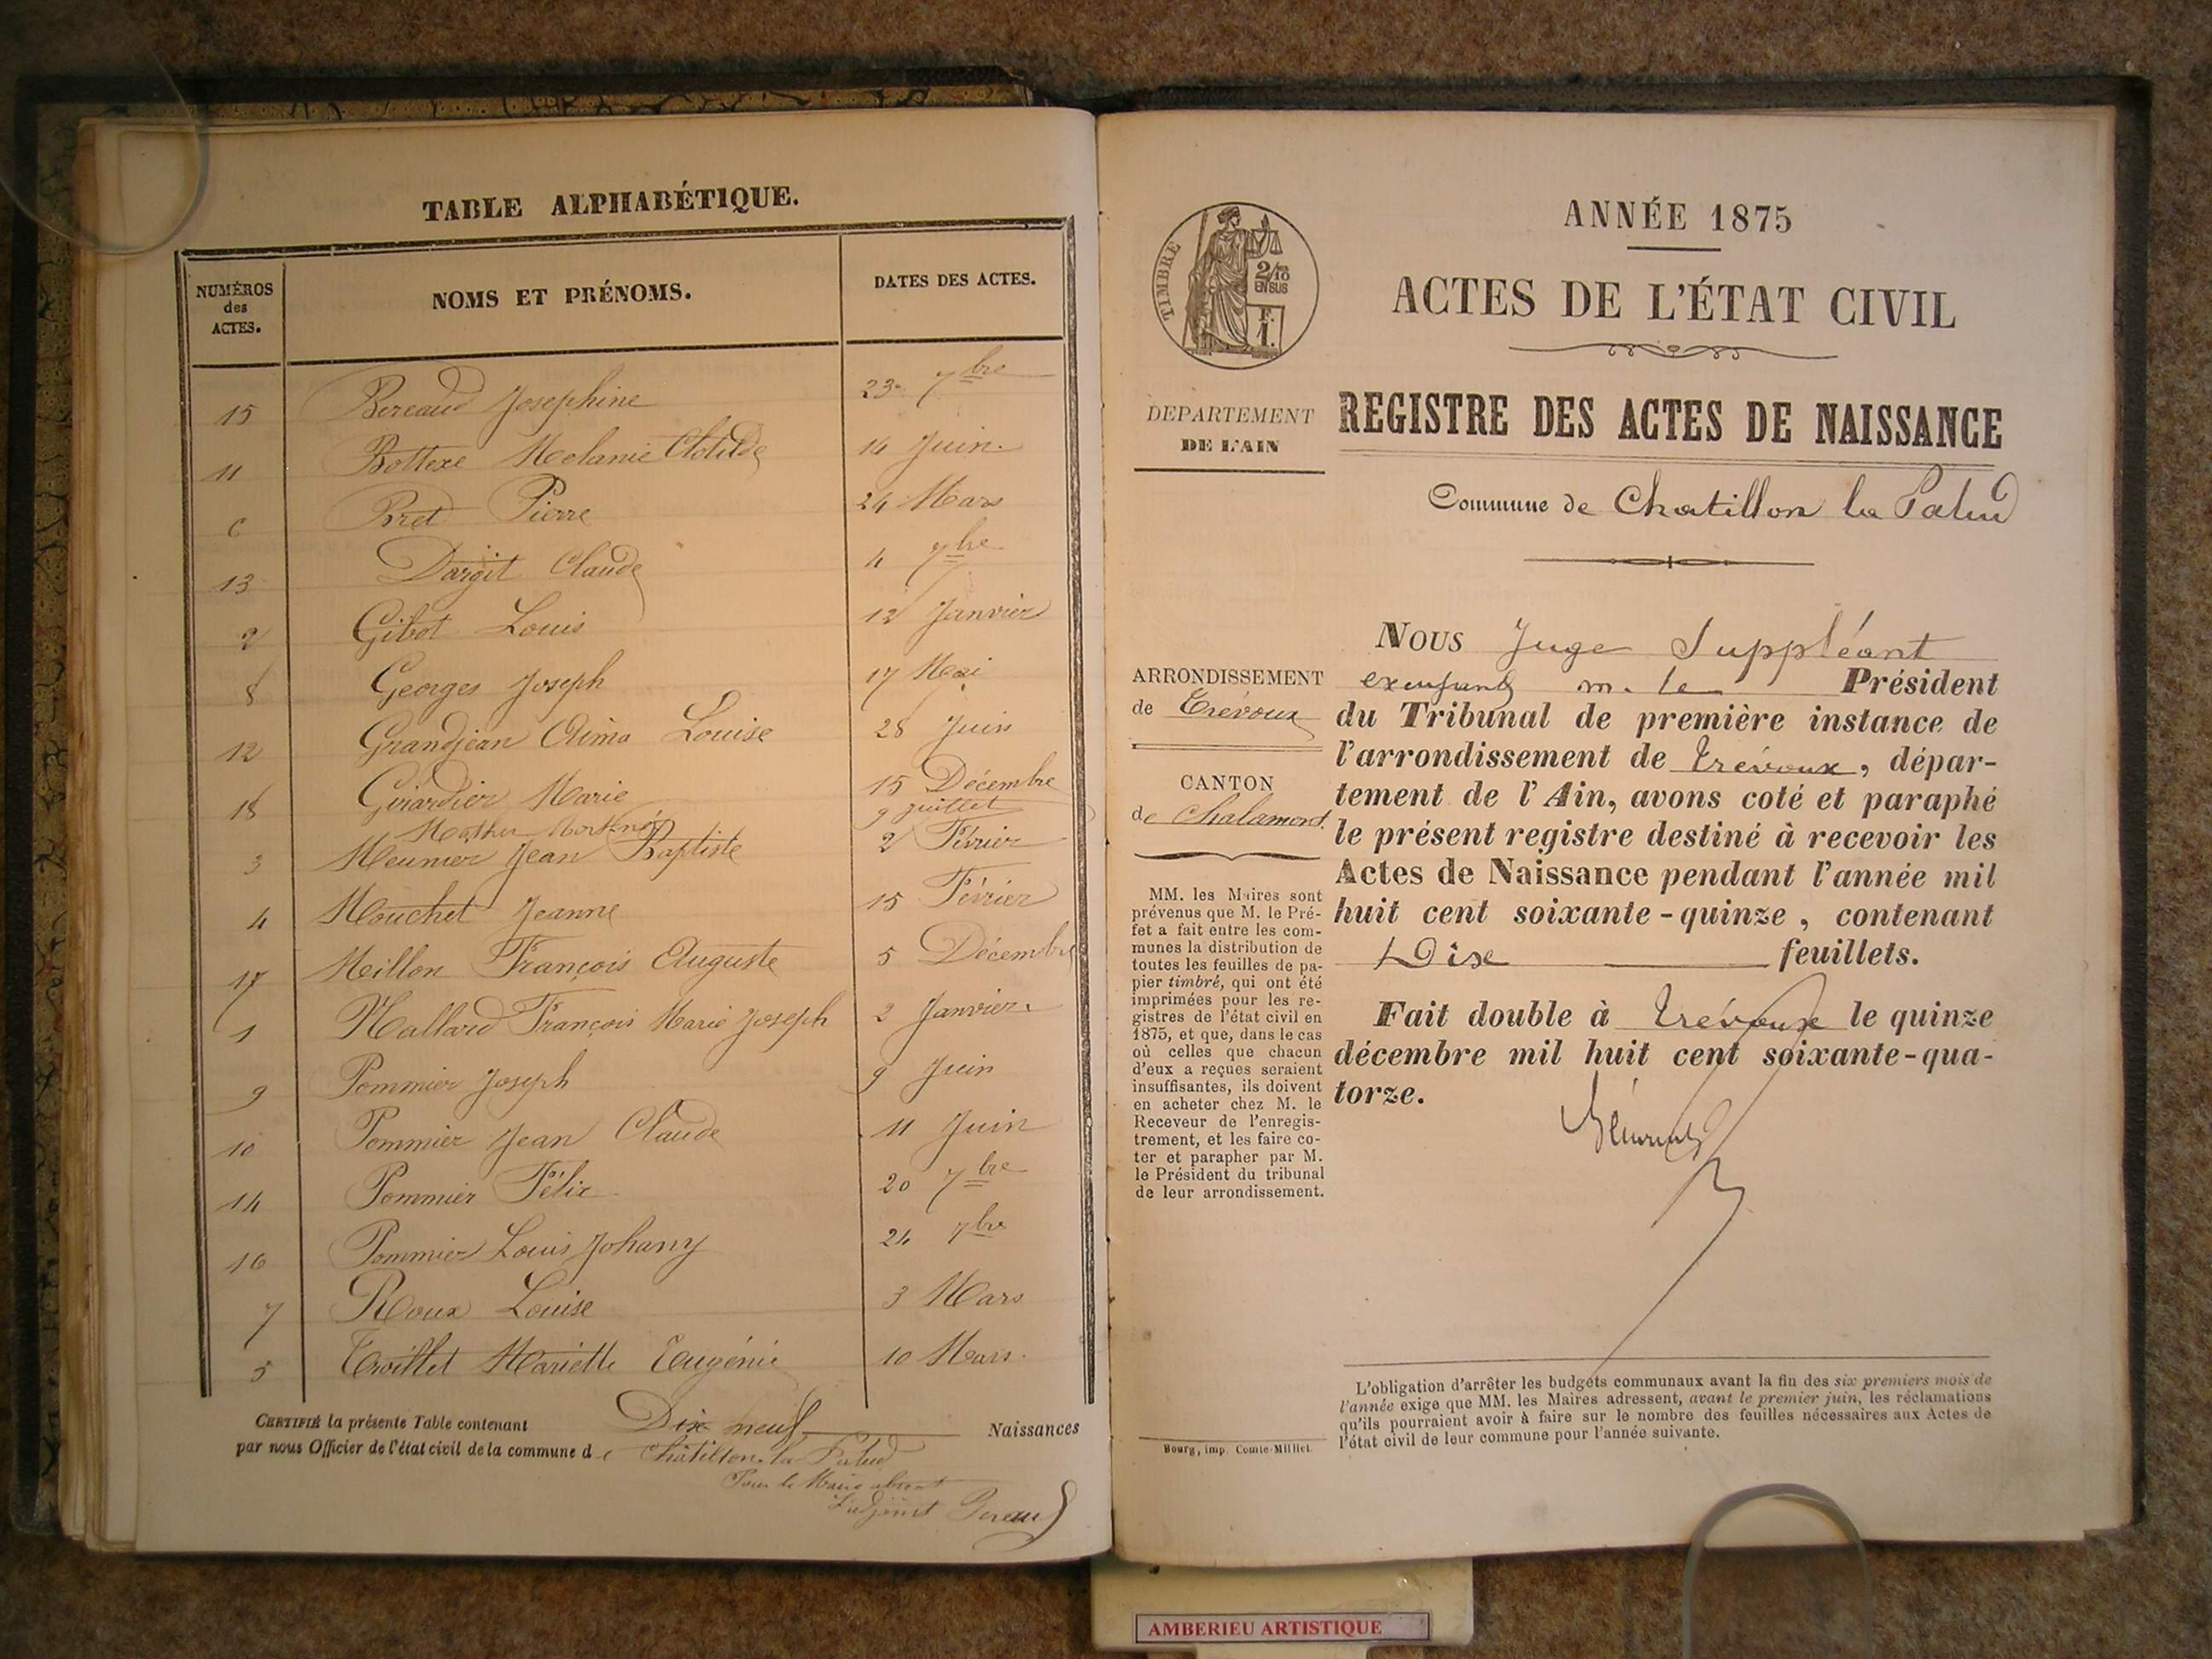 TABLE ALPHABÉTIQUE.
NUMÉROS des ACTES. NOMS ET PRÉNOMS. DATES DES ACTES.
15 Bereaud Josephine 23 7bre
11 Bottexe Melanie Clotilde 14 Juin
6 Bret Pierre 24 Mars
13 Dargit Claude 4 7bre
2 Gibot Louis 12 Janvier
8 Georges Joseph 17 Mai
12 Grandjean Anna Louise 28 Juin
18 Girardier Marie 15 Décembre
9 juillet
3 Meunier Jean Baptiste 2 Février
4 Mouchet Jeanne 15 Février
17 Millon François Auguste 5 Décembre
1 Mallard François Marie Joseph 2 Janvier
9 Pommier Joseph 9 Juin
10 Pommier Jean Claude 11 Juin
14 Pommier Félix 20 7bre
16 Pommier Louis Johany 24 7bre
7 Roux Louise 3 Mars
5 Troillet Mariette Eugénie 10 Mars
CERTIFIÉ la présente Table contenant Dix neuf Naissances
par nous Officier de l'état civil de la commune de Châtillon la Palud
Pour le Maire absent
L'adjoint Bereaud
ANNÉE 1875
ACTES DE L'ÉTAT CIVIL
TIMBRE
2/10
EN SUS
F.
1.
DEPARTEMENT
DE L'AIN
REGISTRE DES ACTES DE NAISSANCE
Commune de Chatillon la Palud
ARRONDISSEMENT
de Trévoux
CANTON
de Chalamont.
MM. les Maires sont
prévenus que M. le Pré-
fet a fait entre les com-
munes la distribution de
toutes les feuilles de pa-
pier timbré, qui ont été
imprimées pour les re-
gistres de l'état civil en
1875, et que, dans le cas
où celles que chacun
d'eux a reçues seraient
insuffisantes, ils doivent
en acheter chez M. le
Receveur de l'enregis-
trement, et les faire co-
ter et parapher par M.
le Président du tribunal
de leur arrondissement.
Bourg, imp. Comte-Milliet.
Nous Juge Suppléant
m. le Président
du Tribunal de première instance de
l'arrondissement de Trévoux, dépar-
tement de l'Ain, avons coté et paraphé
le présent registre destiné à recevoir les
Actes de Naissance pendant l'année mil
huit cent soixante-quinze, contenant
Dix feuillets.
Fait double à Trévoux le quinze
décembre mil huit cent soixante-qua-
torze.
L'obligation d'arrêter les budgets communaux avant la fin des six premiers mois de
l'année exige que MM. les Maires adressent, avant le premier juin, les réclamations
qu'ils pourraient avoir à faire sur le nombre des feuilles nécessaires aux Actes de
l'état civil de leur commune pour l'année suivante.
AMBERIEU ARTISTIQUE